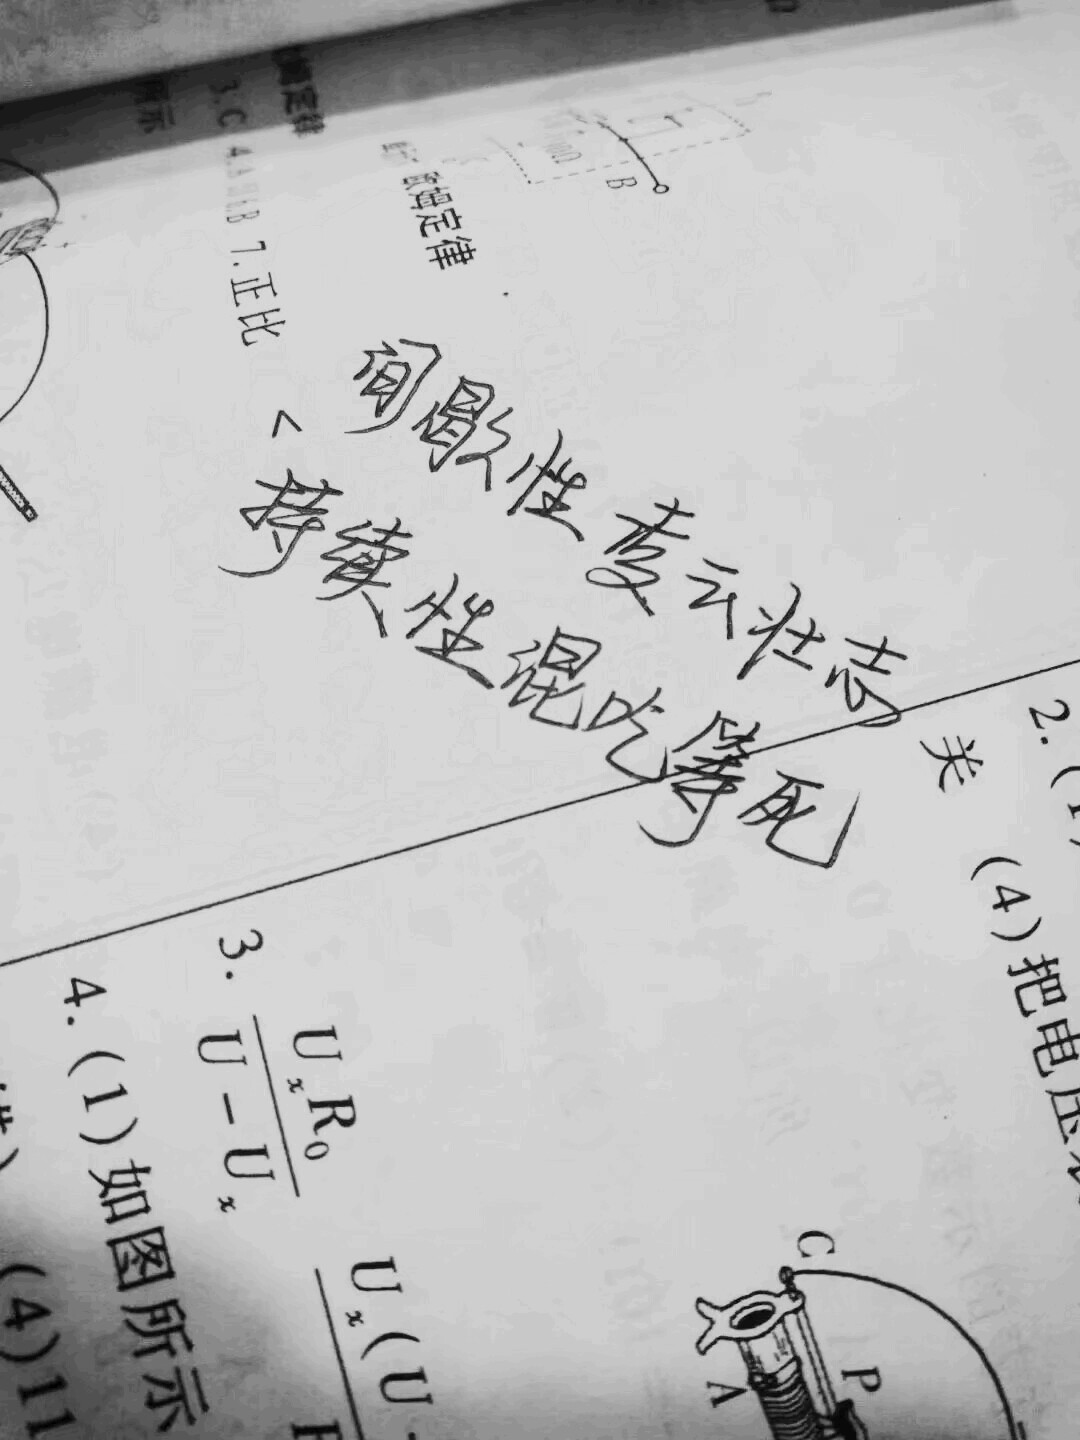 所示
3.C 4.A
B 7.正比
欧姆定律
10Ω
B
间歇性凌云壮志
<
持续性混吃等死
2.(1)
关
(4)把电压
3. UₓR₀ / U－Uₓ
Uₓ(U
4.(1)如图所示
(4)11
C
P
A